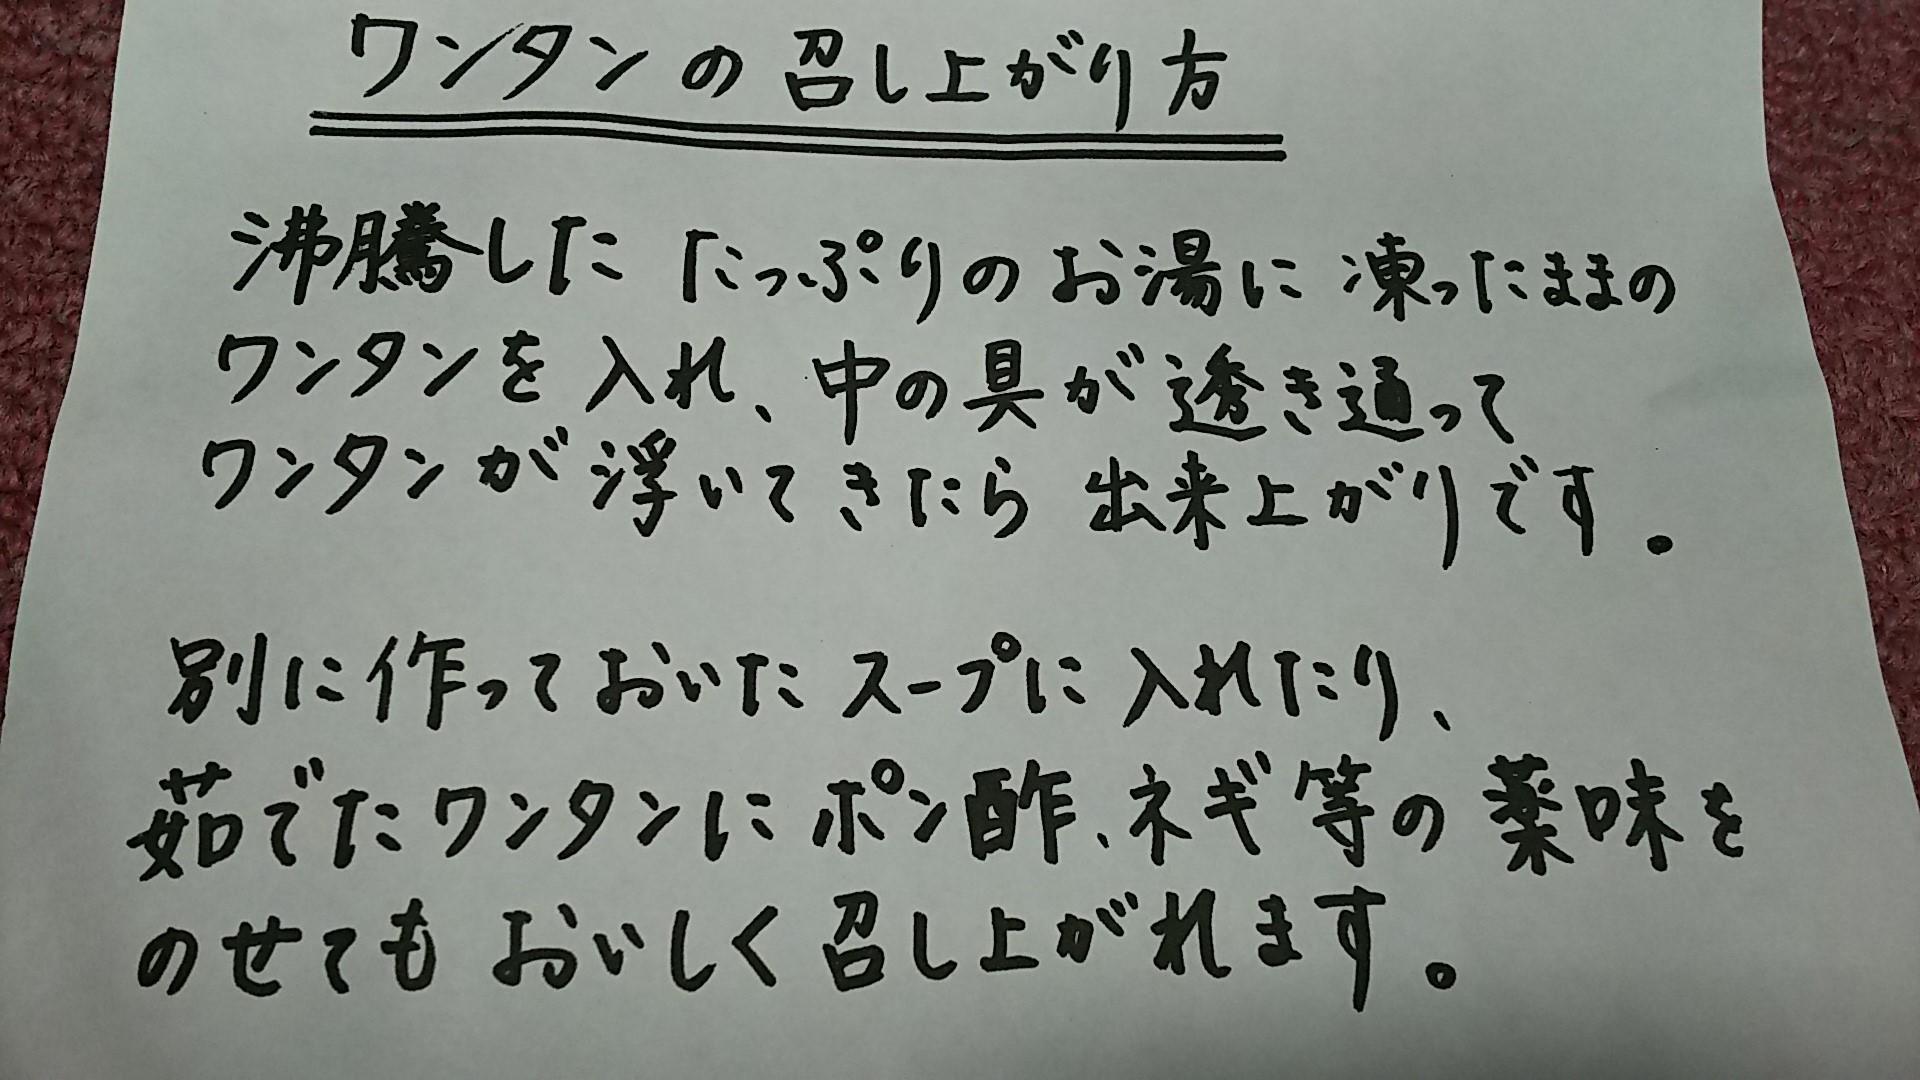 ワンタンの召し上がり方
沸騰したたっぷりのお湯に凍ったままの
ワンタンを入れ、中の具が透き通って
ワンタンが浮いてきたら出来上がりです。
別に作っておいたスープに入れたり、
茹でたワンタンにポン酢、ネギ等の薬味を
のせてもおいしく召し上がれます。